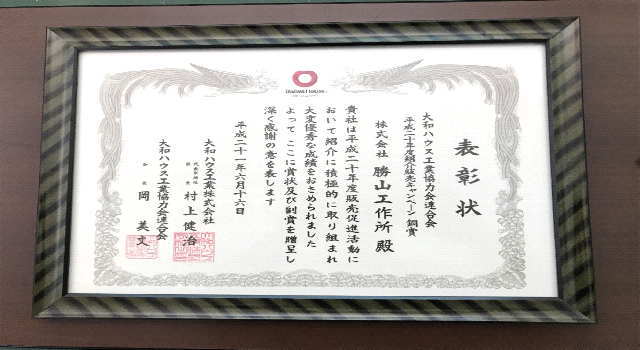 表彰状
大和ハウス工業協力会連合会
平成二十年度紹介販売キャンペーン 銅賞
株式会社 勝山工作所 殿
貴社は平成二十年度販売促進活動に
おいて紹介に積極的に取り組まれ
大変優秀な成績をおさめられました
よって ここに賞状及び副賞を贈呈し
深く感謝の意を表します
平成二十一年六月十六日
大和ハウス工業株式会社
村上 健治
大和ハウス工業協力会連合会
会長 岡 美文